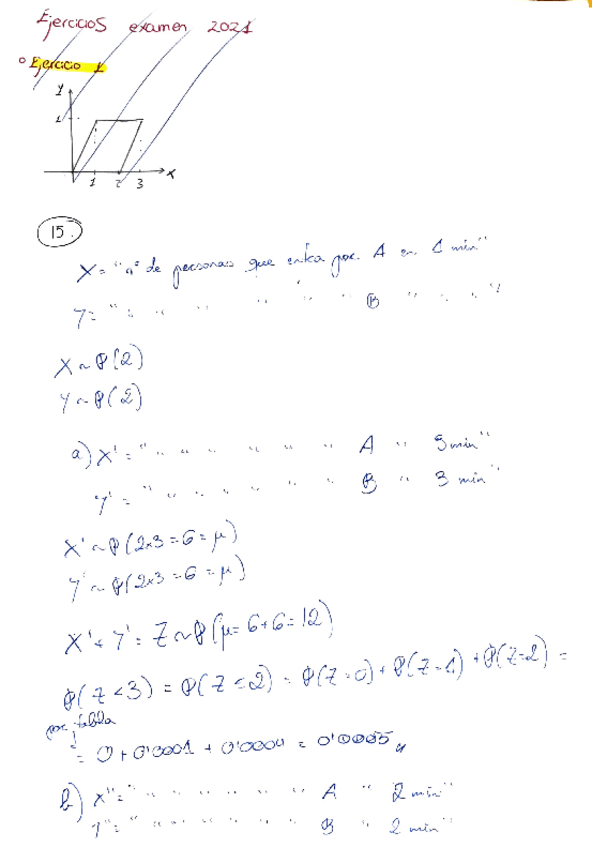 Ejercicios examen 2021
o Ejercicio 1
Y
1
1 2 3 X
15.
X = "nº de personas que entra por A en 1 min"
Y = " " " " " " " B " " "
X ~ P(2)
Y ~ P(2)
a) X' = " " " " " " " A " 3 min"
Y' = " " " " " " " B " 3 min"
X' ~ P(2x3 = 6 = μ)
Y' ~ P(2x3 = 6 = μ)
X' + Y' = Z ~ P(μ = 6+6 = 12)
P(Z < 3) = P(Z ≤ 2) = P(Z=0) + P(Z=1) + P(Z=2) =
por tabla
= 0 + 0'0001 + 0'0004 = 0'0005
b) X'' = " " " " " " " A " 2 min"
Y'' = " " " " " " " B " 2 min"